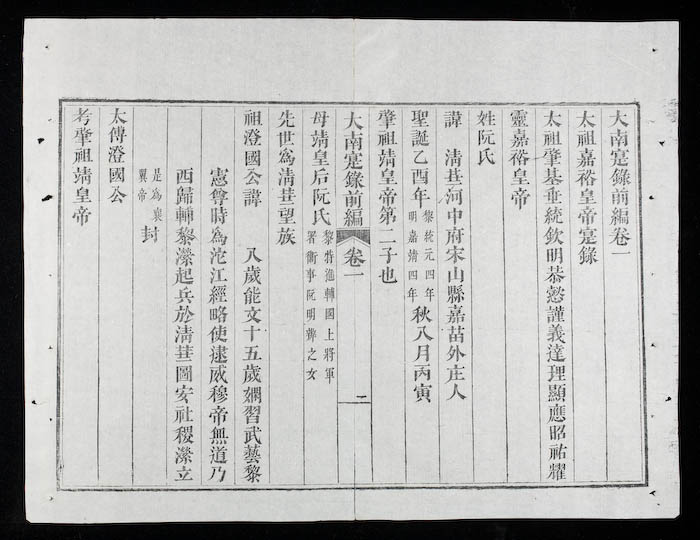 大南寔錄前編卷一
太祖嘉裕皇帝寔錄
太祖肇基垂統欽明恭懿謹義達理顯應昭祐耀
靈嘉裕皇帝
姓阮氏
諱 清葩河中府宋山縣嘉苗外庄人
聖誕乙酉年黎統元四年明嘉靖四年秋八月丙寅
肇祖靖皇帝第二子也
大南寔錄前編 卷一 二
母靖皇后阮氏黎特進輔國上將軍署衛事阮明辨之女
先世為清葩望族
祖澄國公諱 八歲能文十五歲嫻習武藝黎
憲尊時為沱江經略使逮威穆帝無道乃
西歸輔黎瀠起兵於清葩圖安社稷瀠立
是為襄翼帝封
太傅澄國公
考肇祖靖皇帝